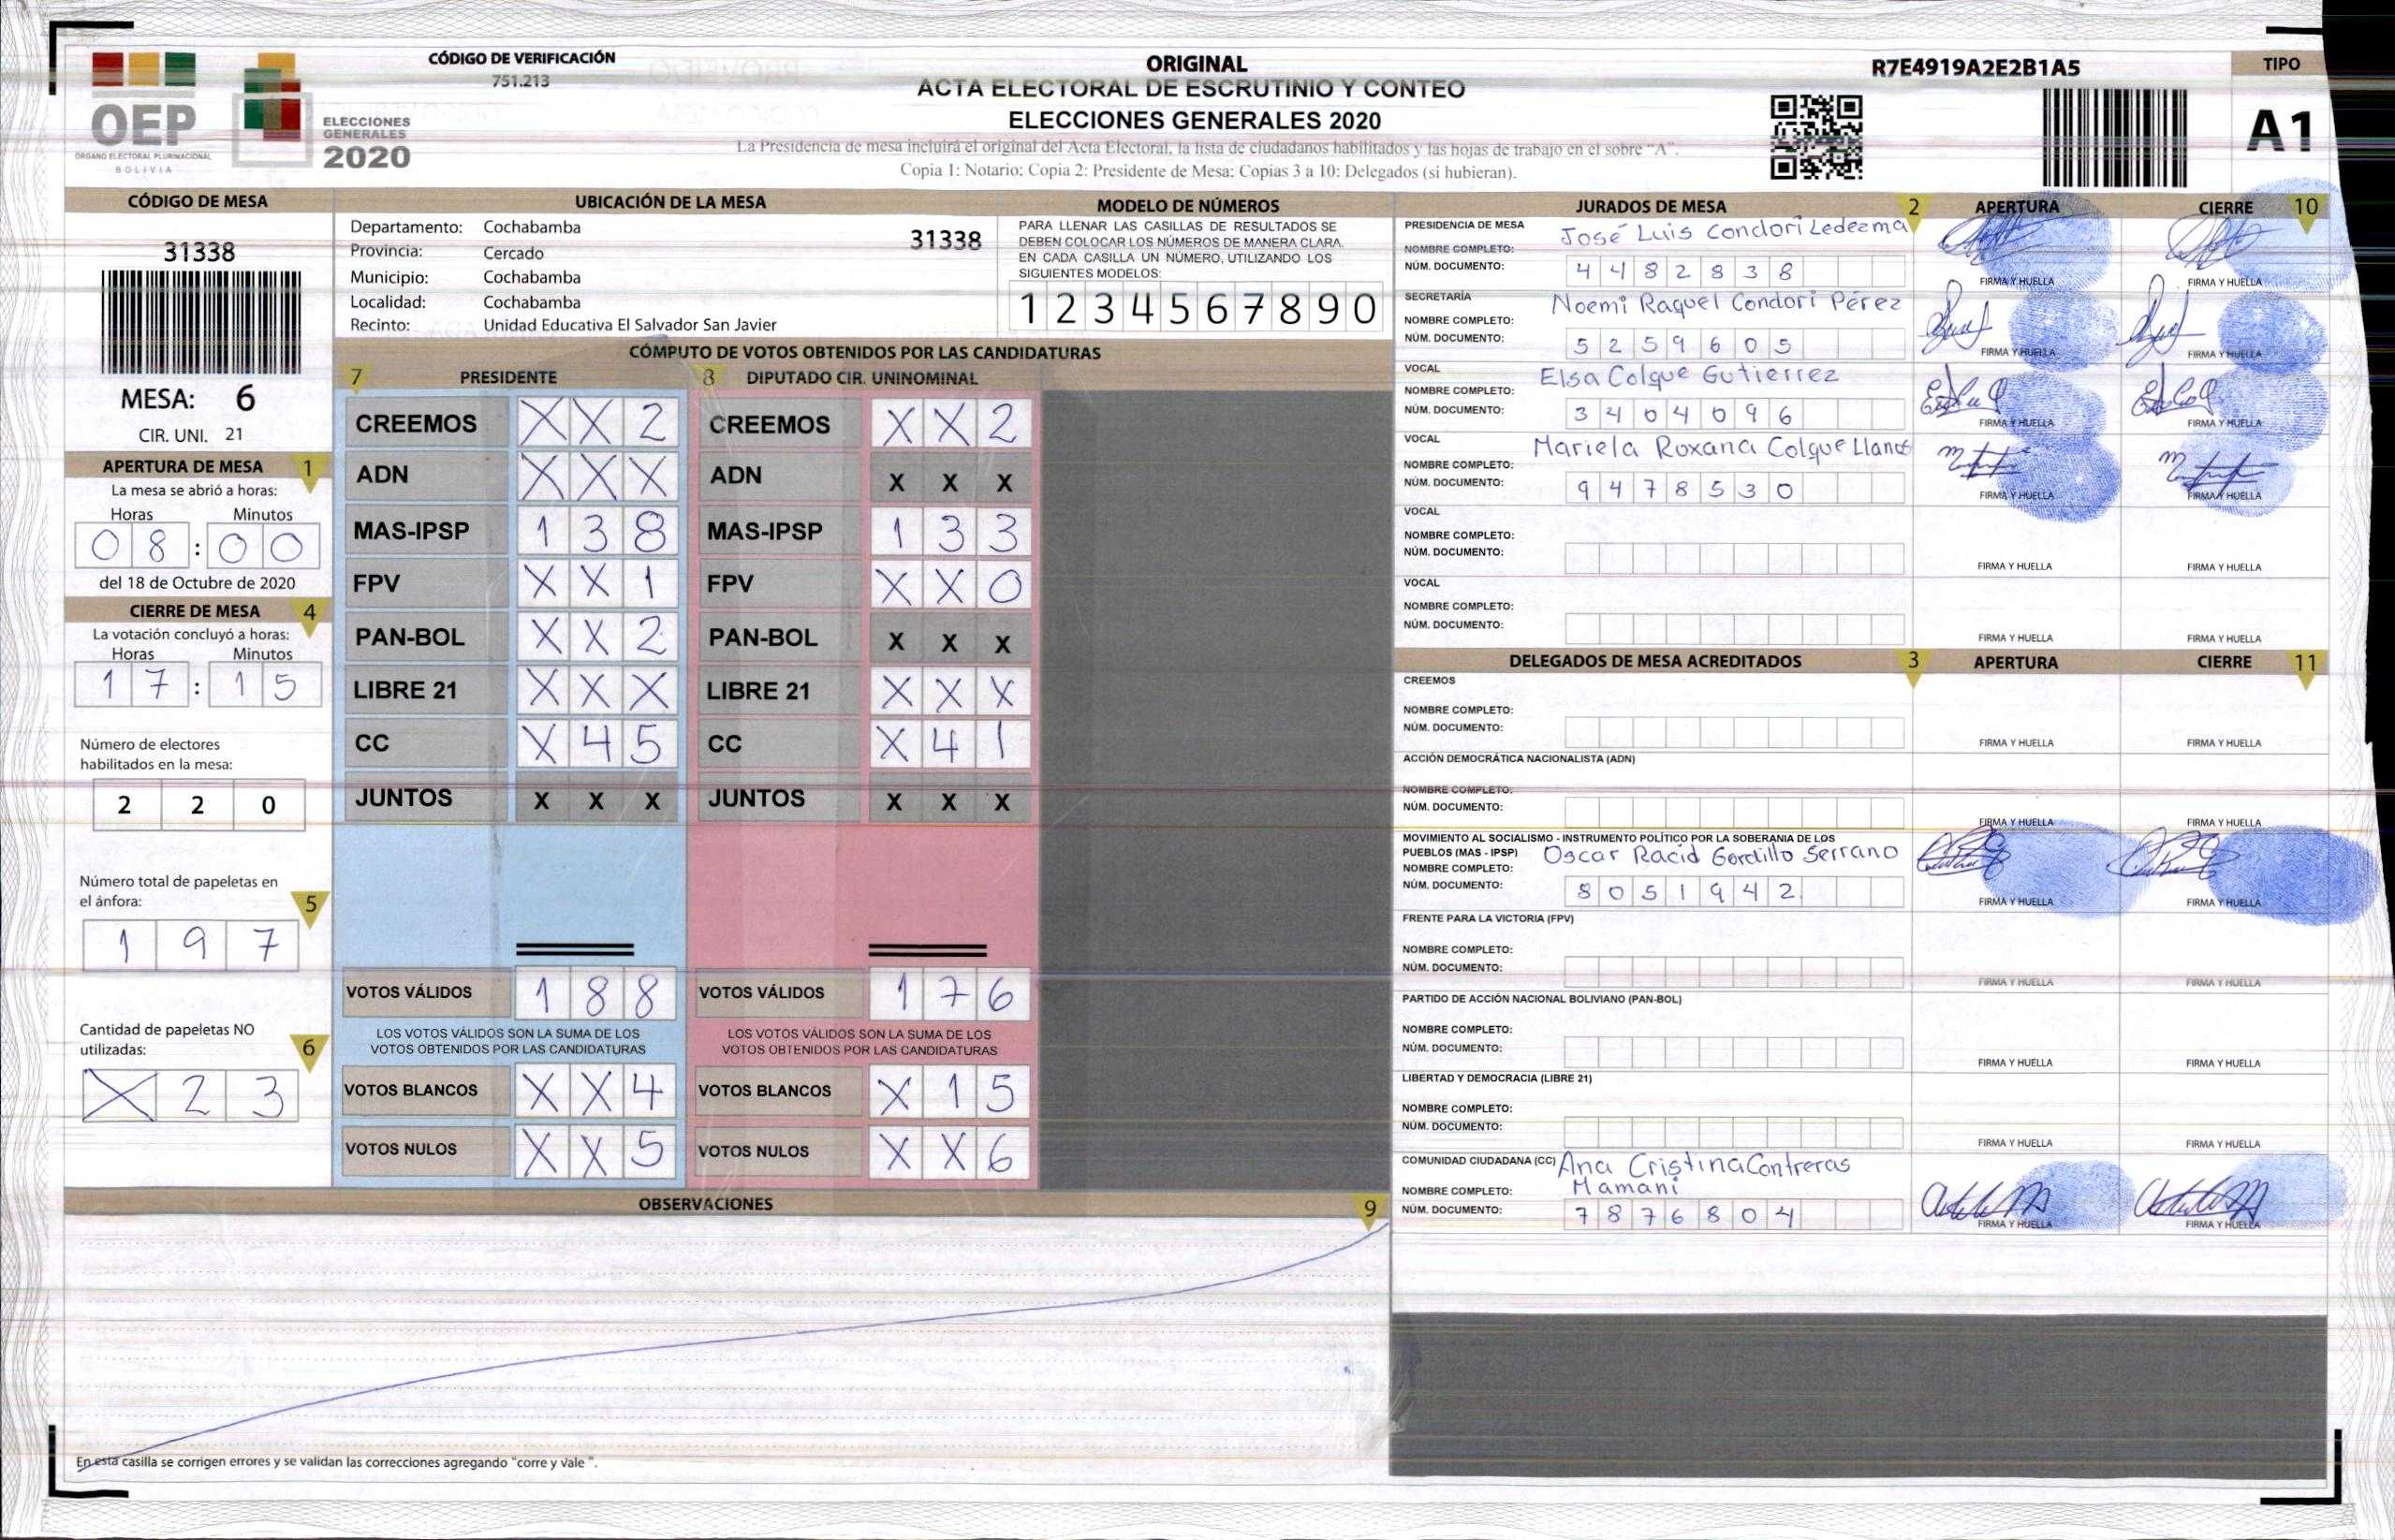 OEP
ÓRGANO ELECTORAL PLURINACIONAL
BOLIVIA
ELECCIONES
GENERALES
2020
CÓDIGO DE VERIFICACIÓN
751.213
ORIGINAL
ACTA ELECTORAL DE ESCRUTINIO Y CONTEO
ELECCIONES GENERALES 2020
La Presidencia de mesa incluirá el original del Acta Electoral, la lista de ciudadanos habilitados y las hojas de trabajo en el sobre "A".
Copia 1: Notario; Copia 2: Presidente de Mesa; Copias 3 a 10: Delegados (si hubieran).
R7E4919A2E2B1A5
TIPO
A1
CÓDIGO DE MESA
31338
MESA: 6
CIR. UNI. 21
APERTURA DE MESA 1
La mesa se abrió a horas:
Horas Minutos
0 8 : 0 0
del 18 de Octubre de 2020
CIERRE DE MESA 4
La votación concluyó a horas:
Horas Minutos
1 7 : 1 5
Número de electores
habilitados en la mesa:
2 2 0
Número total de papeletas en
el ánfora: 5
1 9 7
Cantidad de papeletas NO
utilizadas: 6
X 2 3
UBICACIÓN DE LA MESA
Departamento: Cochabamba
31338
Provincia: Cercado
Municipio: Cochabamba
Localidad: Cochabamba
Recinto: Unidad Educativa El Salvador San Javier
MODELO DE NÚMEROS
PARA LLENAR LAS CASILLAS DE RESULTADOS SE
DEBEN COLOCAR LOS NÚMEROS DE MANERA CLARA.
EN CADA CASILLA UN NÚMERO, UTILIZANDO LOS
SIGUIENTES MODELOS:
1 2 3 4 5 6 7 8 9 0
CÓMPUTO DE VOTOS OBTENIDOS POR LAS CANDIDATURAS
7 PRESIDENTE 8 DIPUTADO CIR. UNINOMINAL
CREEMOS X X 2 CREEMOS X X 2
ADN X X X ADN X X X
MAS-IPSP 1 3 8 MAS-IPSP 1 3 3
FPV X X 1 FPV X X 0
PAN-BOL X X 2 PAN-BOL X X X
LIBRE 21 X X X LIBRE 21 X X X
CC X 4 5 CC X 4 1
JUNTOS X X X JUNTOS X X X
VOTOS VÁLIDOS 1 8 8 VOTOS VÁLIDOS 1 7 6
LOS VOTOS VÁLIDOS SON LA SUMA DE LOS LOS VOTOS VÁLIDOS SON LA SUMA DE LOS
VOTOS OBTENIDOS POR LAS CANDIDATURAS VOTOS OBTENIDOS POR LAS CANDIDATURAS
VOTOS BLANCOS X X 4 VOTOS BLANCOS X 1 5
VOTOS NULOS X X 5 VOTOS NULOS X X 6
OBSERVACIONES 9
En esta casilla se corrigen errores y se validan las correcciones agregando "corre y vale ".
JURADOS DE MESA 2 APERTURA CIERRE 10
PRESIDENCIA DE MESA
NOMBRE COMPLETO: José Luis Condori Ledezma
NÚM. DOCUMENTO: 4 4 8 2 8 3 8
FIRMA Y HUELLA FIRMA Y HUELLA
SECRETARÍA
NOMBRE COMPLETO: Noemi Raquel Condori Pérez
NÚM. DOCUMENTO: 5 2 5 9 6 0 5
FIRMA Y HUELLA FIRMA Y HUELLA
VOCAL
NOMBRE COMPLETO: Elsa Colque Gutierrez
NÚM. DOCUMENTO: 3 4 0 4 0 9 6
FIRMA Y HUELLA FIRMA Y HUELLA
VOCAL
NOMBRE COMPLETO: Mariela Roxana Colque Llanos
NÚM. DOCUMENTO: 9 4 7 8 5 3 0
FIRMA Y HUELLA FIRMA Y HUELLA
VOCAL
NOMBRE COMPLETO:
NÚM. DOCUMENTO:
FIRMA Y HUELLA FIRMA Y HUELLA
VOCAL
NOMBRE COMPLETO:
NÚM. DOCUMENTO:
FIRMA Y HUELLA FIRMA Y HUELLA
DELEGADOS DE MESA ACREDITADOS 3 APERTURA CIERRE 11
CREEMOS
NOMBRE COMPLETO:
NÚM. DOCUMENTO:
FIRMA Y HUELLA FIRMA Y HUELLA
ACCIÓN DEMOCRÁTICA NACIONALISTA (ADN)
NOMBRE COMPLETO:
NÚM. DOCUMENTO:
FIRMA Y HUELLA FIRMA Y HUELLA
MOVIMIENTO AL SOCIALISMO - INSTRUMENTO POLÍTICO POR LA SOBERANIA DE LOS
PUEBLOS (MAS - IPSP) Oscar Racid Gordillo Serrano
NOMBRE COMPLETO:
NÚM. DOCUMENTO: 8 0 5 1 9 4 2
FIRMA Y HUELLA FIRMA Y HUELLA
FRENTE PARA LA VICTORIA (FPV)
NOMBRE COMPLETO:
NÚM. DOCUMENTO:
FIRMA Y HUELLA FIRMA Y HUELLA
PARTIDO DE ACCIÓN NACIONAL BOLIVIANO (PAN-BOL)
NOMBRE COMPLETO:
NÚM. DOCUMENTO:
FIRMA Y HUELLA FIRMA Y HUELLA
LIBERTAD Y DEMOCRACIA (LIBRE 21)
NOMBRE COMPLETO:
NÚM. DOCUMENTO:
FIRMA Y HUELLA FIRMA Y HUELLA
COMUNIDAD CIUDADANA (CC) Ana Cristina Contreras
NOMBRE COMPLETO: Mamani
NÚM. DOCUMENTO: 7 8 7 6 8 0 4
FIRMA Y HUELLA FIRMA Y HUELLA